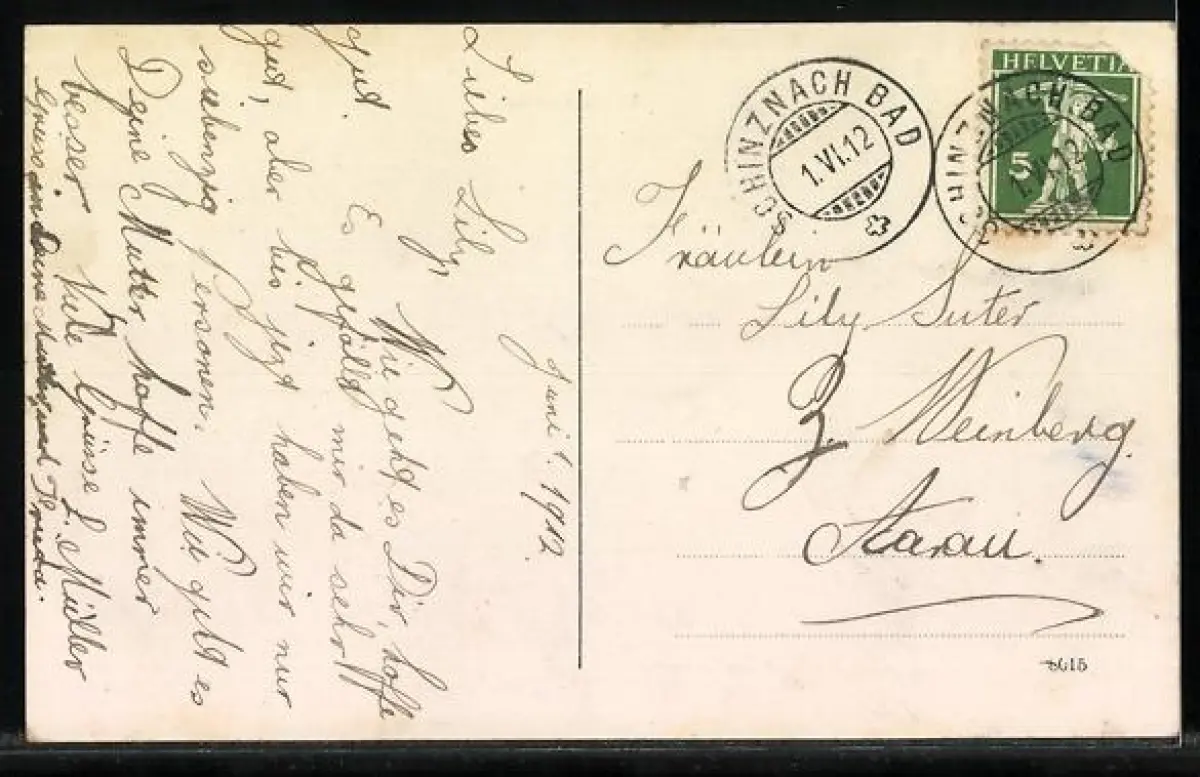 Juni 1. 1912.
Liebes Lily,
Wie geht es Dir, hoffe
gut. Es gefällt mir da sehr
gut, aber bis jezt haben wir nur
siebenzig Personen. Wie geht es
Deine Mutter, hoffe immer
besser. Viele Grüsse L. Müller
Gruss an Deine Mutter und Truda.
SCHINZNACH BAD
1.VI.12
HELVETIA
5
SCHINZNACH BAD
1.VI.12
Fräulein
Lily Suter
Z. Weinberg.
Aarau.
8615